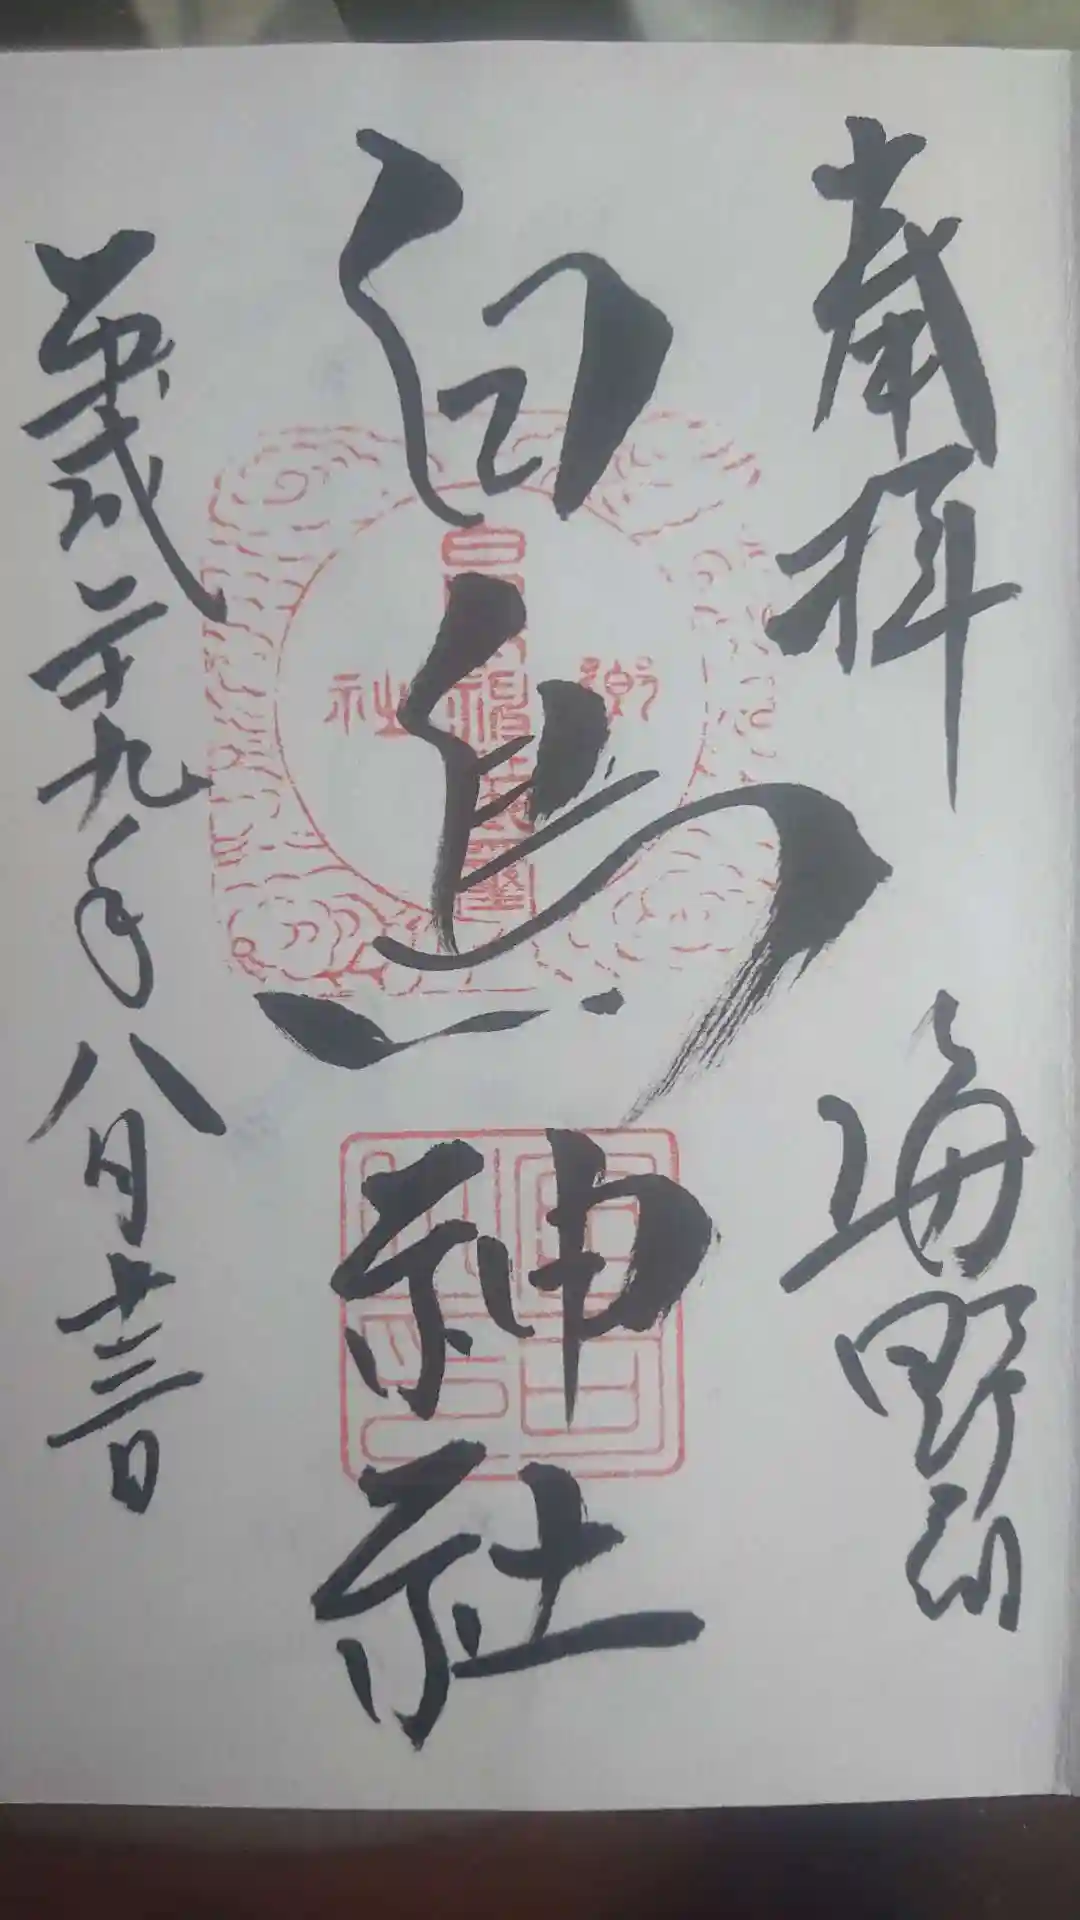 奉拝　海野郷
白鳥神社
平成二十九年八月十三日